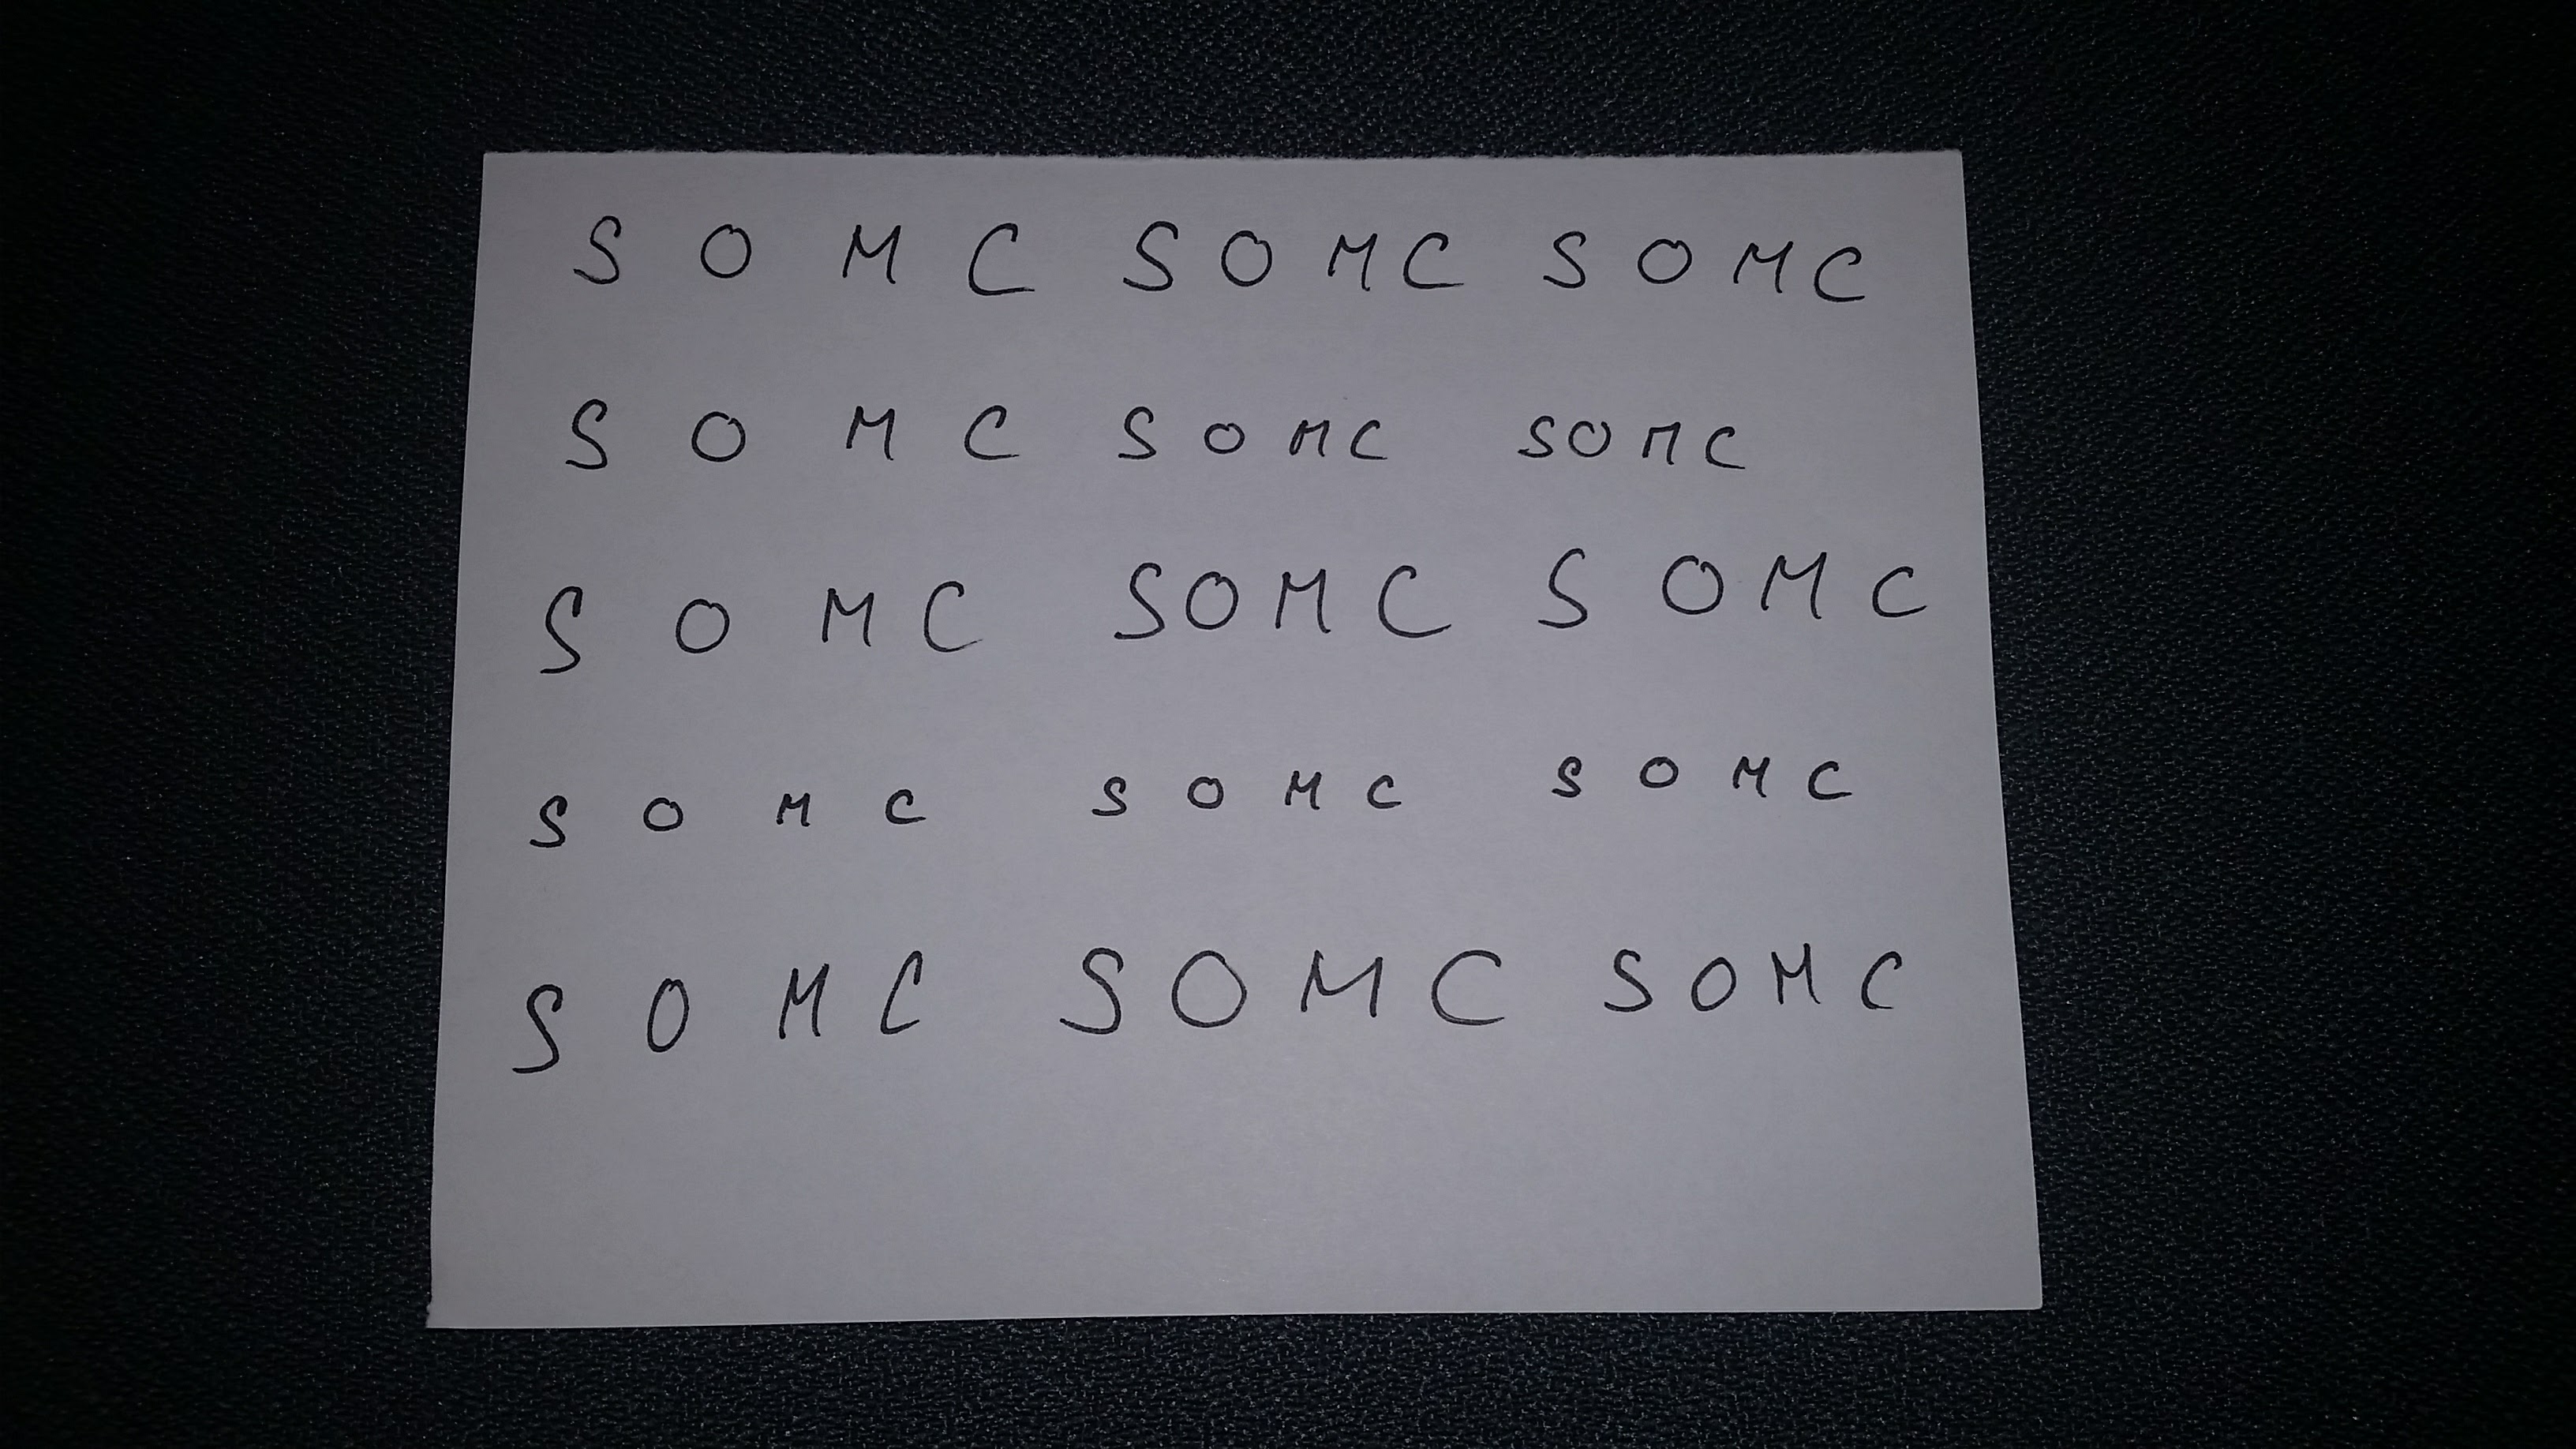 S O M C S O M C S O M C
S O M C S O M C S O M C
S O M C S O M C S O M C
S O M C S O M C S O M C
S O M C S O M C S O M C